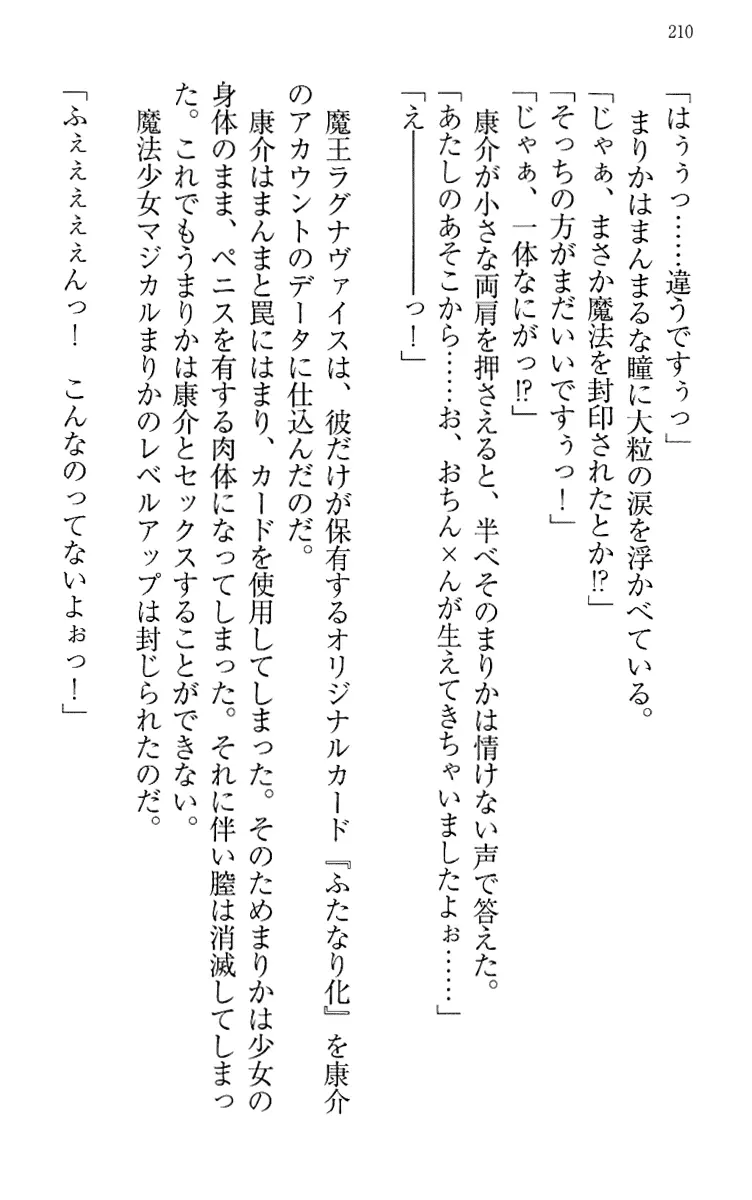 210
「はぅぅっ……違うですぅっ」
まりかはまんまるな瞳に大粒の涙を浮かべている。
「じゃぁ、まさか魔法を封印されたとか!?」
「そっちの方がまだいいですぅっ！」
「じゃぁ、一体なにがっ!?」
康介が小さな両肩を押さえると、半べそのまりかは情けない声で答えた。
「あたしのあそこから……お、おちん×んが生えてきちゃいましたよぉ……」
「え――――――っ！」
魔王ラグナヴァイスは、彼だけが保有するオリジナルカード『ふたなり化』を康介
のアカウントのデータに仕込んだのだ。
康介はまんまと罠にはまり、カードを使用してしまった。そのためまりかは少女の
身体のまま、ペニスを有する肉体になってしまった。それに伴い膣は消滅してしまっ
た。これでもうまりかは康介とセックスすることができない。
魔法少女マジカルまりかのレベルアップは封じられたのだ。
「ふぇぇぇぇぇんっ！　こんなのってないよぉっ！」